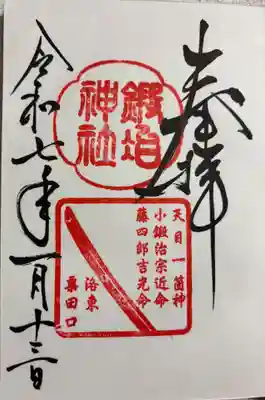 奉拝
鍛冶
神社
天目一箇神
小鍛治宗近命
藤四郎吉光命
洛東
粟田口
令和七年一月十三日